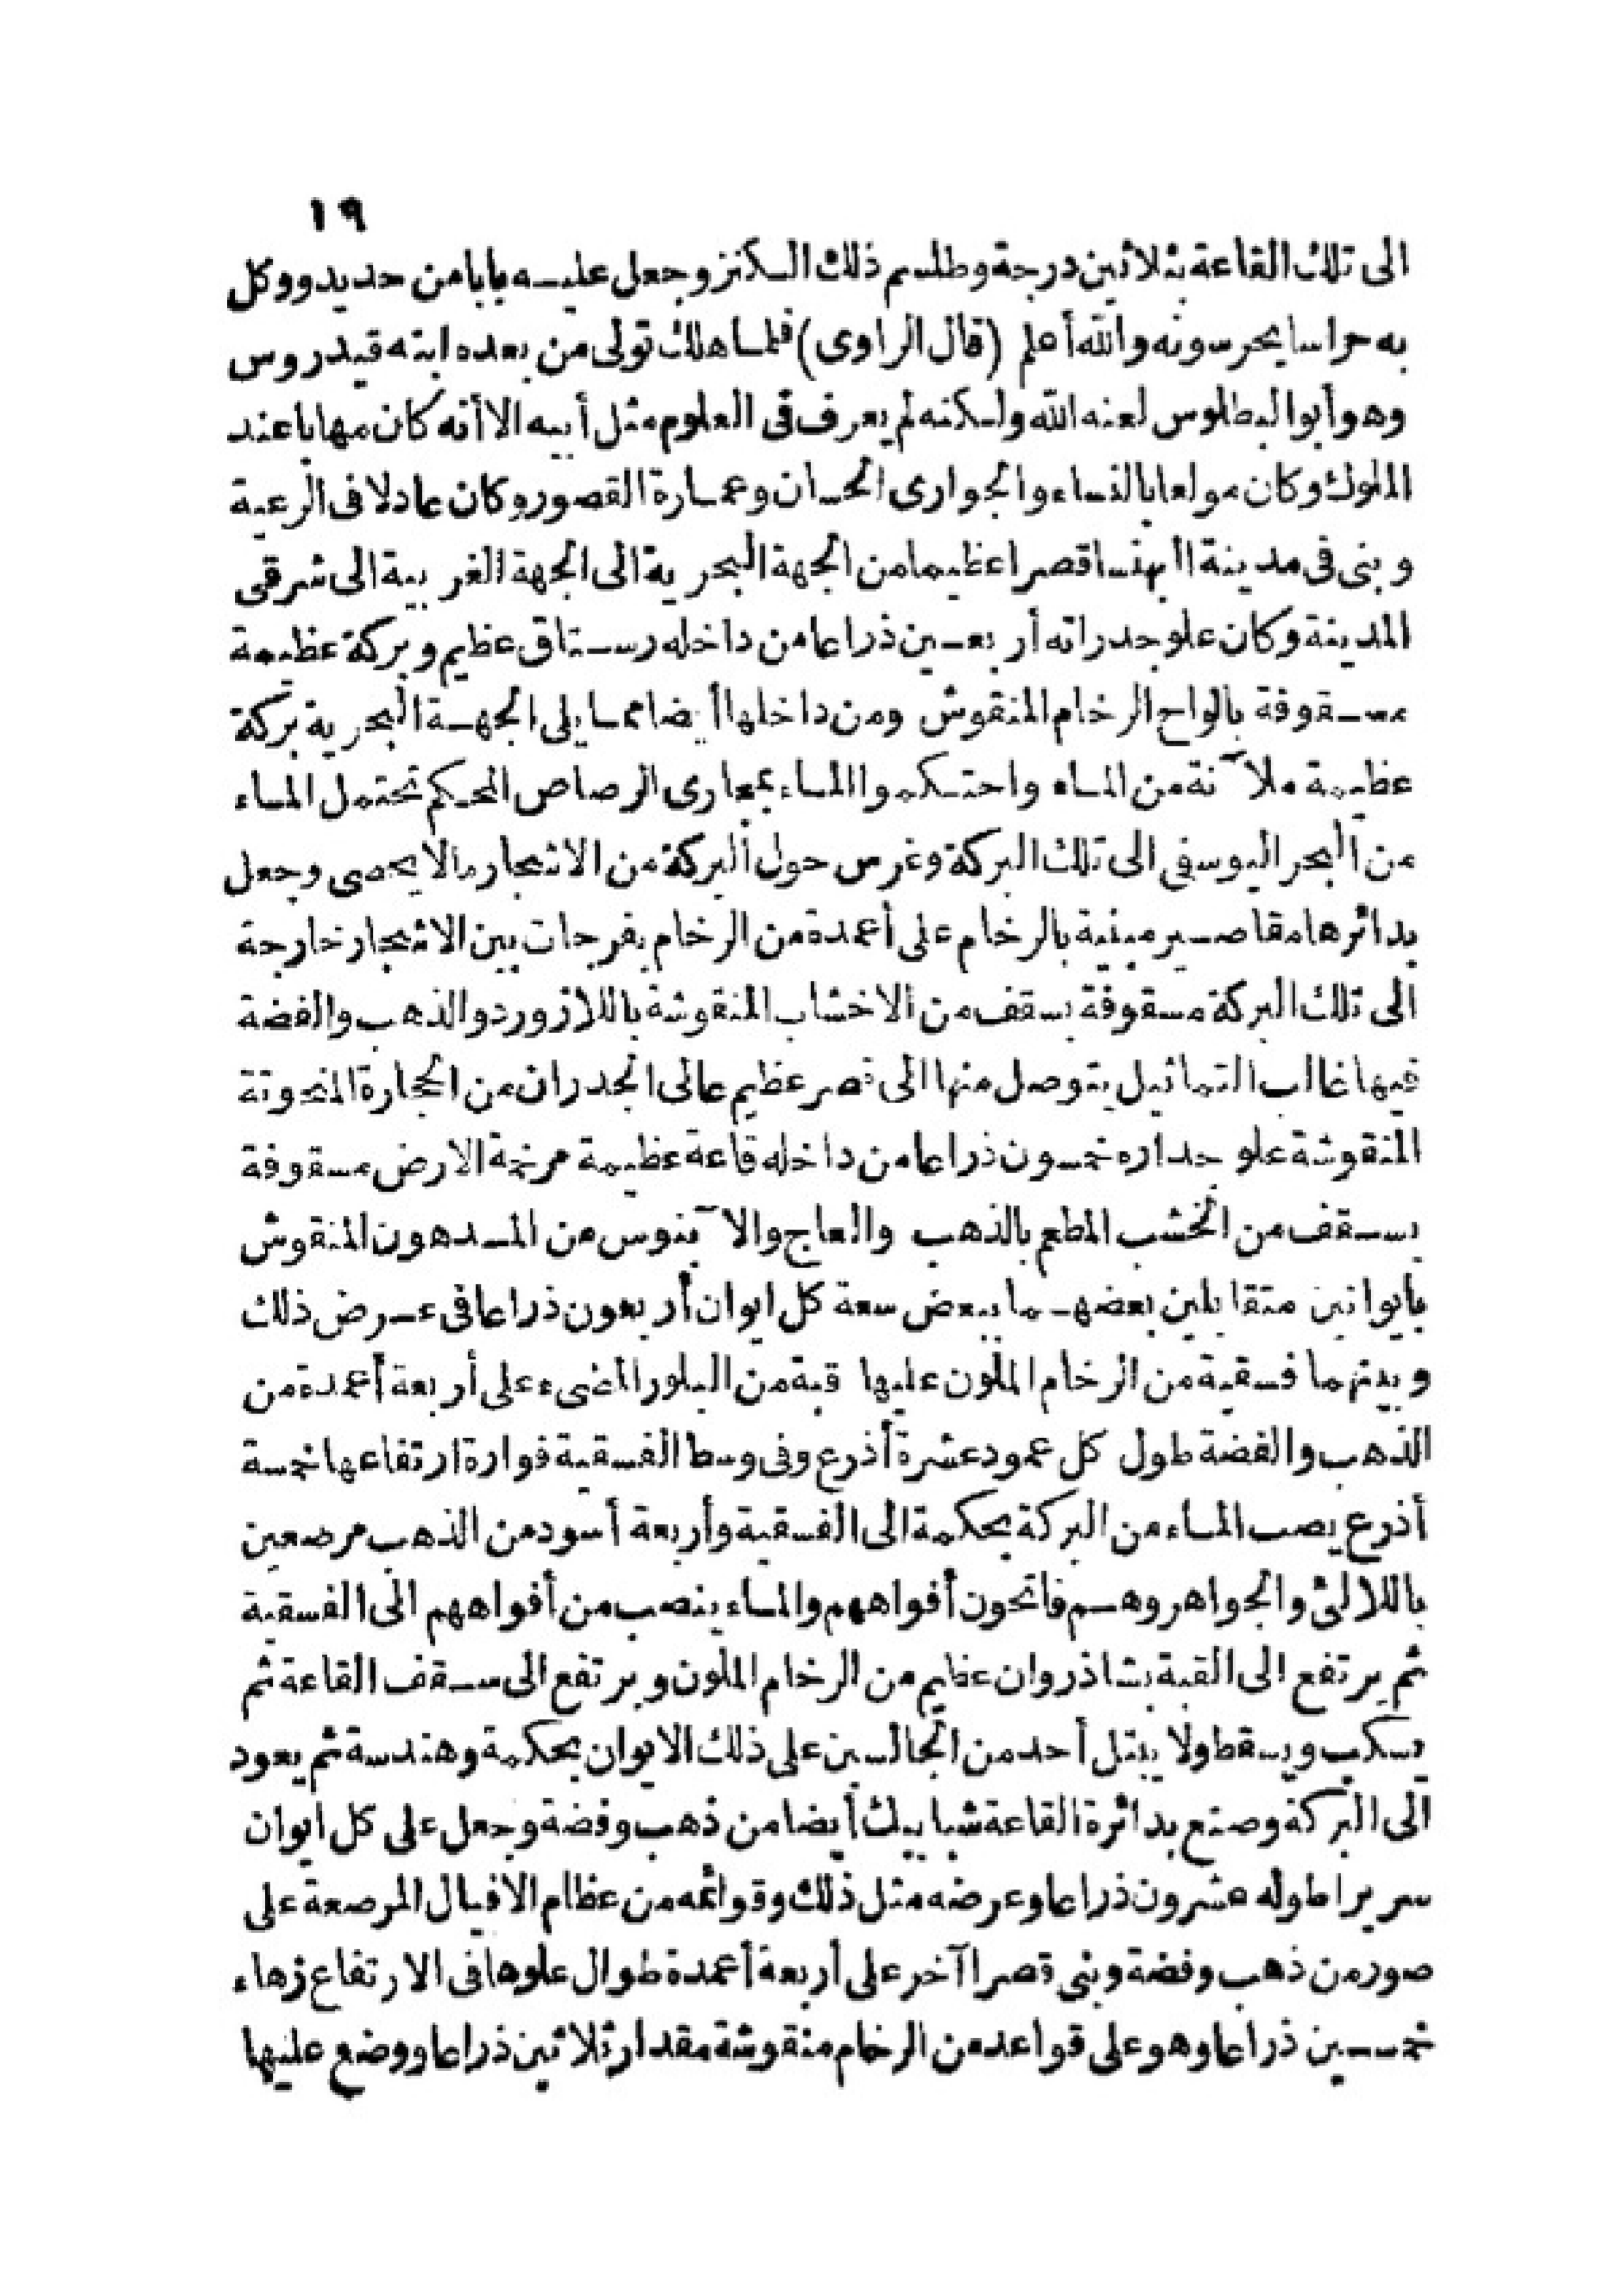 ١٩
الى تلك القاعة بثلاثين درجة وطلسم ذلك الكنز وجعل عليه بابا من حديد ووكل
به حراسا يحرسونه والله أعلم (قال الراوى) فلما هلك تولى من بعده ابنه قيدروس
وهو أبو البطلوس لعنه الله ولكنه لم يعرف فى العلوم مثل أبيه الا أنه كان مهابا عند
الملوك وكان مولعا بالنساء والجوارى الحسان وعمارة القصور وكان عادلا فى الرعية
وبنى فى مدينة البهنسا قصرا عظيما من الجهة البحرية الى الجهة الغربية الى شرقى
المدينة وكان علو جدراته أربعين ذراعا من داخله رستاق عظيم وبركة عظيمة
مسقوفة بالواح الرخام المنقوش ومن داخلها أيضا مما يلى الجهة البحرية بركة
عظيمة ملآنة من الماء واحتكموا الماء بمجارى الرصاص المحكم تحتمل الماء
من البحر اليوسفى الى تلك البركة وغرس حول البركة من الاشجار مالا يحصى وجعل
بدائرها مقاصير مبنية بالرخام على أعمدة من الرخام بفرجات بين الاشجار خارجة
الى تلك البركة مسقوفة بسقف من الاخشاب المنقوشة باللازورد والذهب والفضة
فيها غالب التماثيل يتوصل منها الى قصر عظيم عالى الجدران من الحجارة المنحوتة
المنقوشة علو جداره خمسون ذراعا من داخله قاعة عظيمة مرخمة الارض مسقوفة
بسقف من الخشب المطعم بالذهب والعاج والآبنوس من المدهون المنقوش
بايوانين متقابلين بعضهما ببعض سعة كل ايوان أربعون ذراعا فى عرض ذلك
وبينهما فسقية من الرخام الملون عليها قبة من البلور المضىء على أربعة أعمدة من
الذهب والفضة طول كل عمود عشرة أذرع وفى وسط الفسقية فوارة ارتفاعها خمسة
أذرع يصب الماء من البركة بحكمة الى الفسقية وأربعة أسود من الذهب مرصعين
باللالئ والجواهر وهم فاتحون أفواههم والماء ينصب من أفواههم الى الفسقية
ثم يرتفع الى القبة بشاذروان عظيم من الرخام الملون ويرتفع الى سقف القاعة ثم
يسكب ويسقط ولا يبتل أحد من الجالسين على ذلك الايوان بحكمة وهندسة ثم يعود
الى البركة وصنع بدائرة القاعة شبابيك أيضا من ذهب وفضة وجعل على كل ايوان
سريرا طوله عشرون ذراعا وعرضه مثل ذلك وقوائمه من عظام الافيال المرصعة على
صور من ذهب وفضة وبنى قصرا آخر على أربعة أعمدة طوال علوها فى الارتفاع زهاء
خمسين ذراعا وهو على قواعد من الرخام منقوشة مقدار ثلاثين ذراعا ووضع عليها